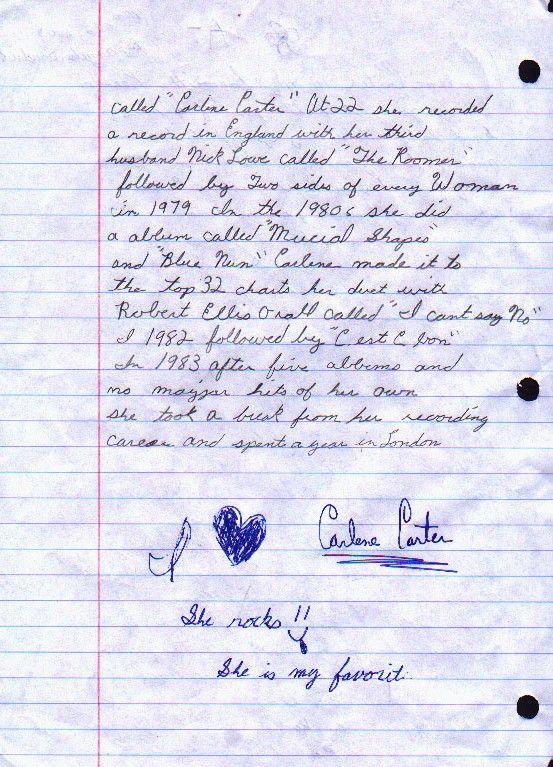 called "Carlene Carter" At 22 she recorded
a record in England with her third
husband Nick Lowe called "The Roomer"
followed by Two sides of every Woman
in 1979 In the 1980s she did
a album called "Mucial Shapes"
and "Blue Nun" Carlene made it to
the top 32 charts her duet with
Robert Ellis Orall called "I cant say No"
I 1982 followed by "C est C bon"
In 1983 after five albums and
no majjar hits of her own
she took a break from her recording
career and spent a year in London
I ♥ Carlene Carter
She rocks !!
She is my favorit